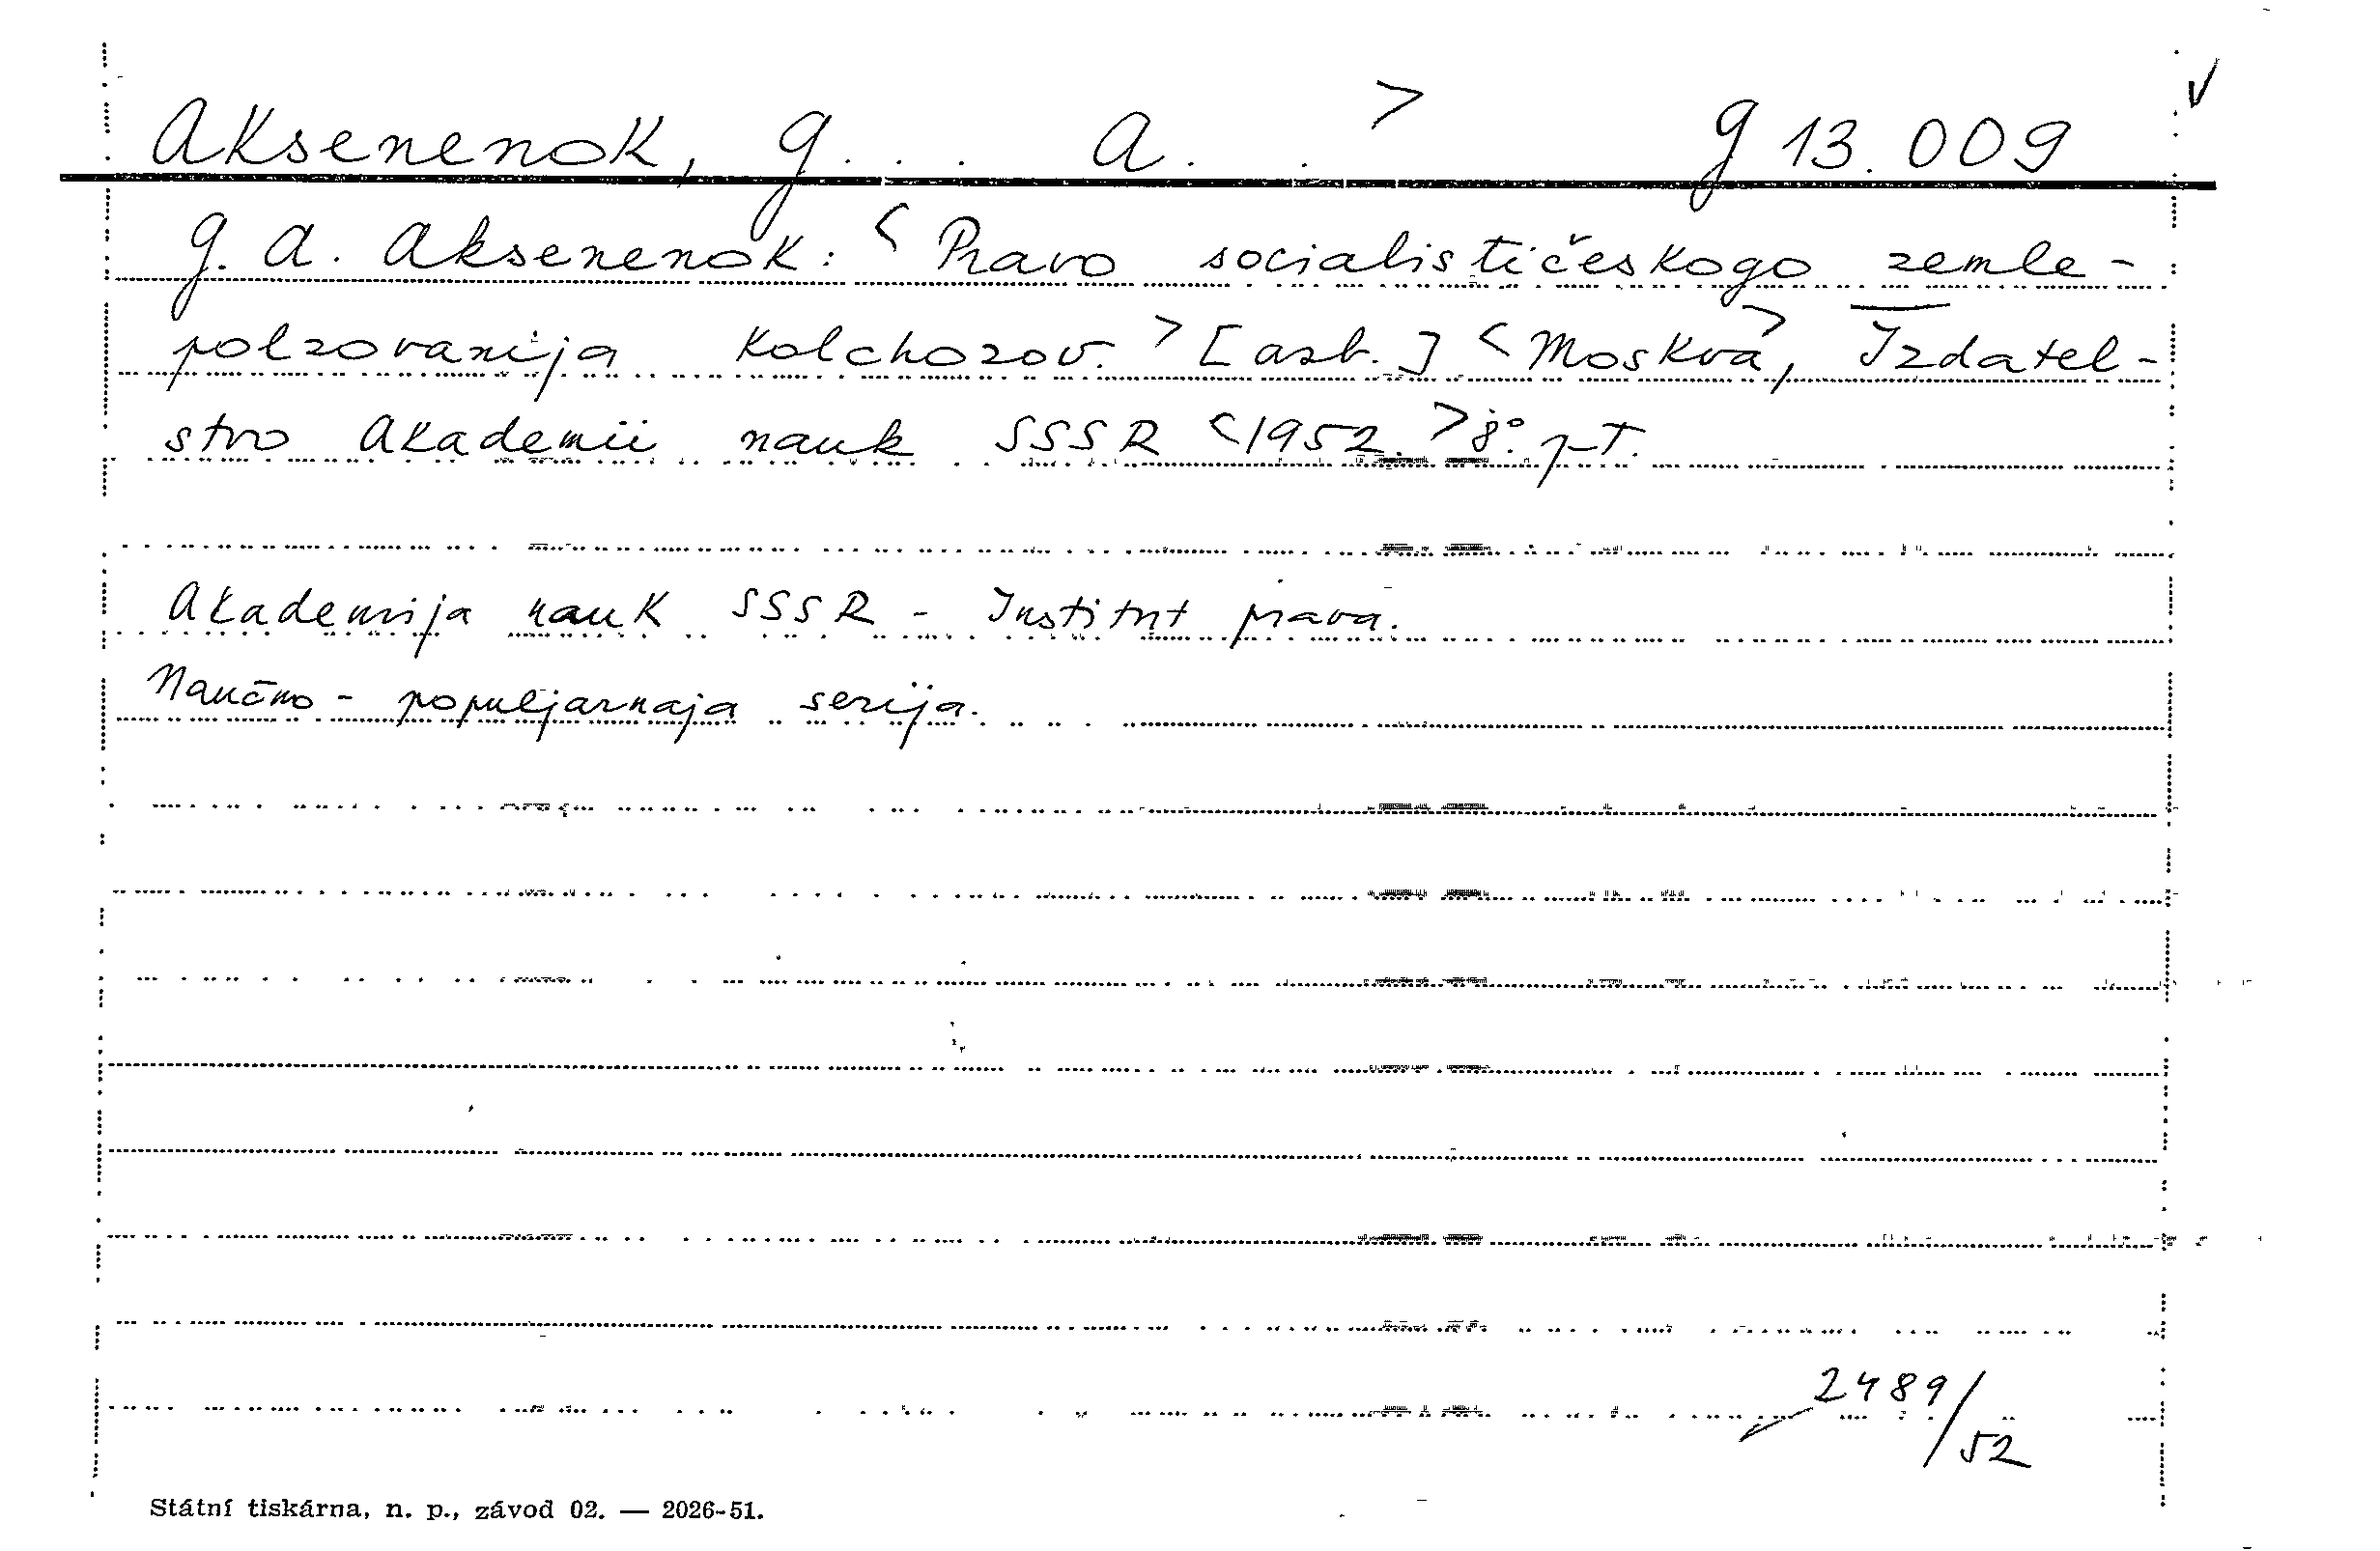 Aksenenok, G... A. . > G 13.009
G. A. Aksenenok: < Pravo socialističeskogo zemle-
polzovanija kolchozov. > [azb.] < Moskva >, Izdatel-
stvo Akademii nauk SSSR < 1952. > 8°. p-T.
Akademija nauk SSSR - Institut prava.
Naučno - populjarnaja serija.
2489/52
Státní tiskárna, n. p., závod 02. — 2026-51.